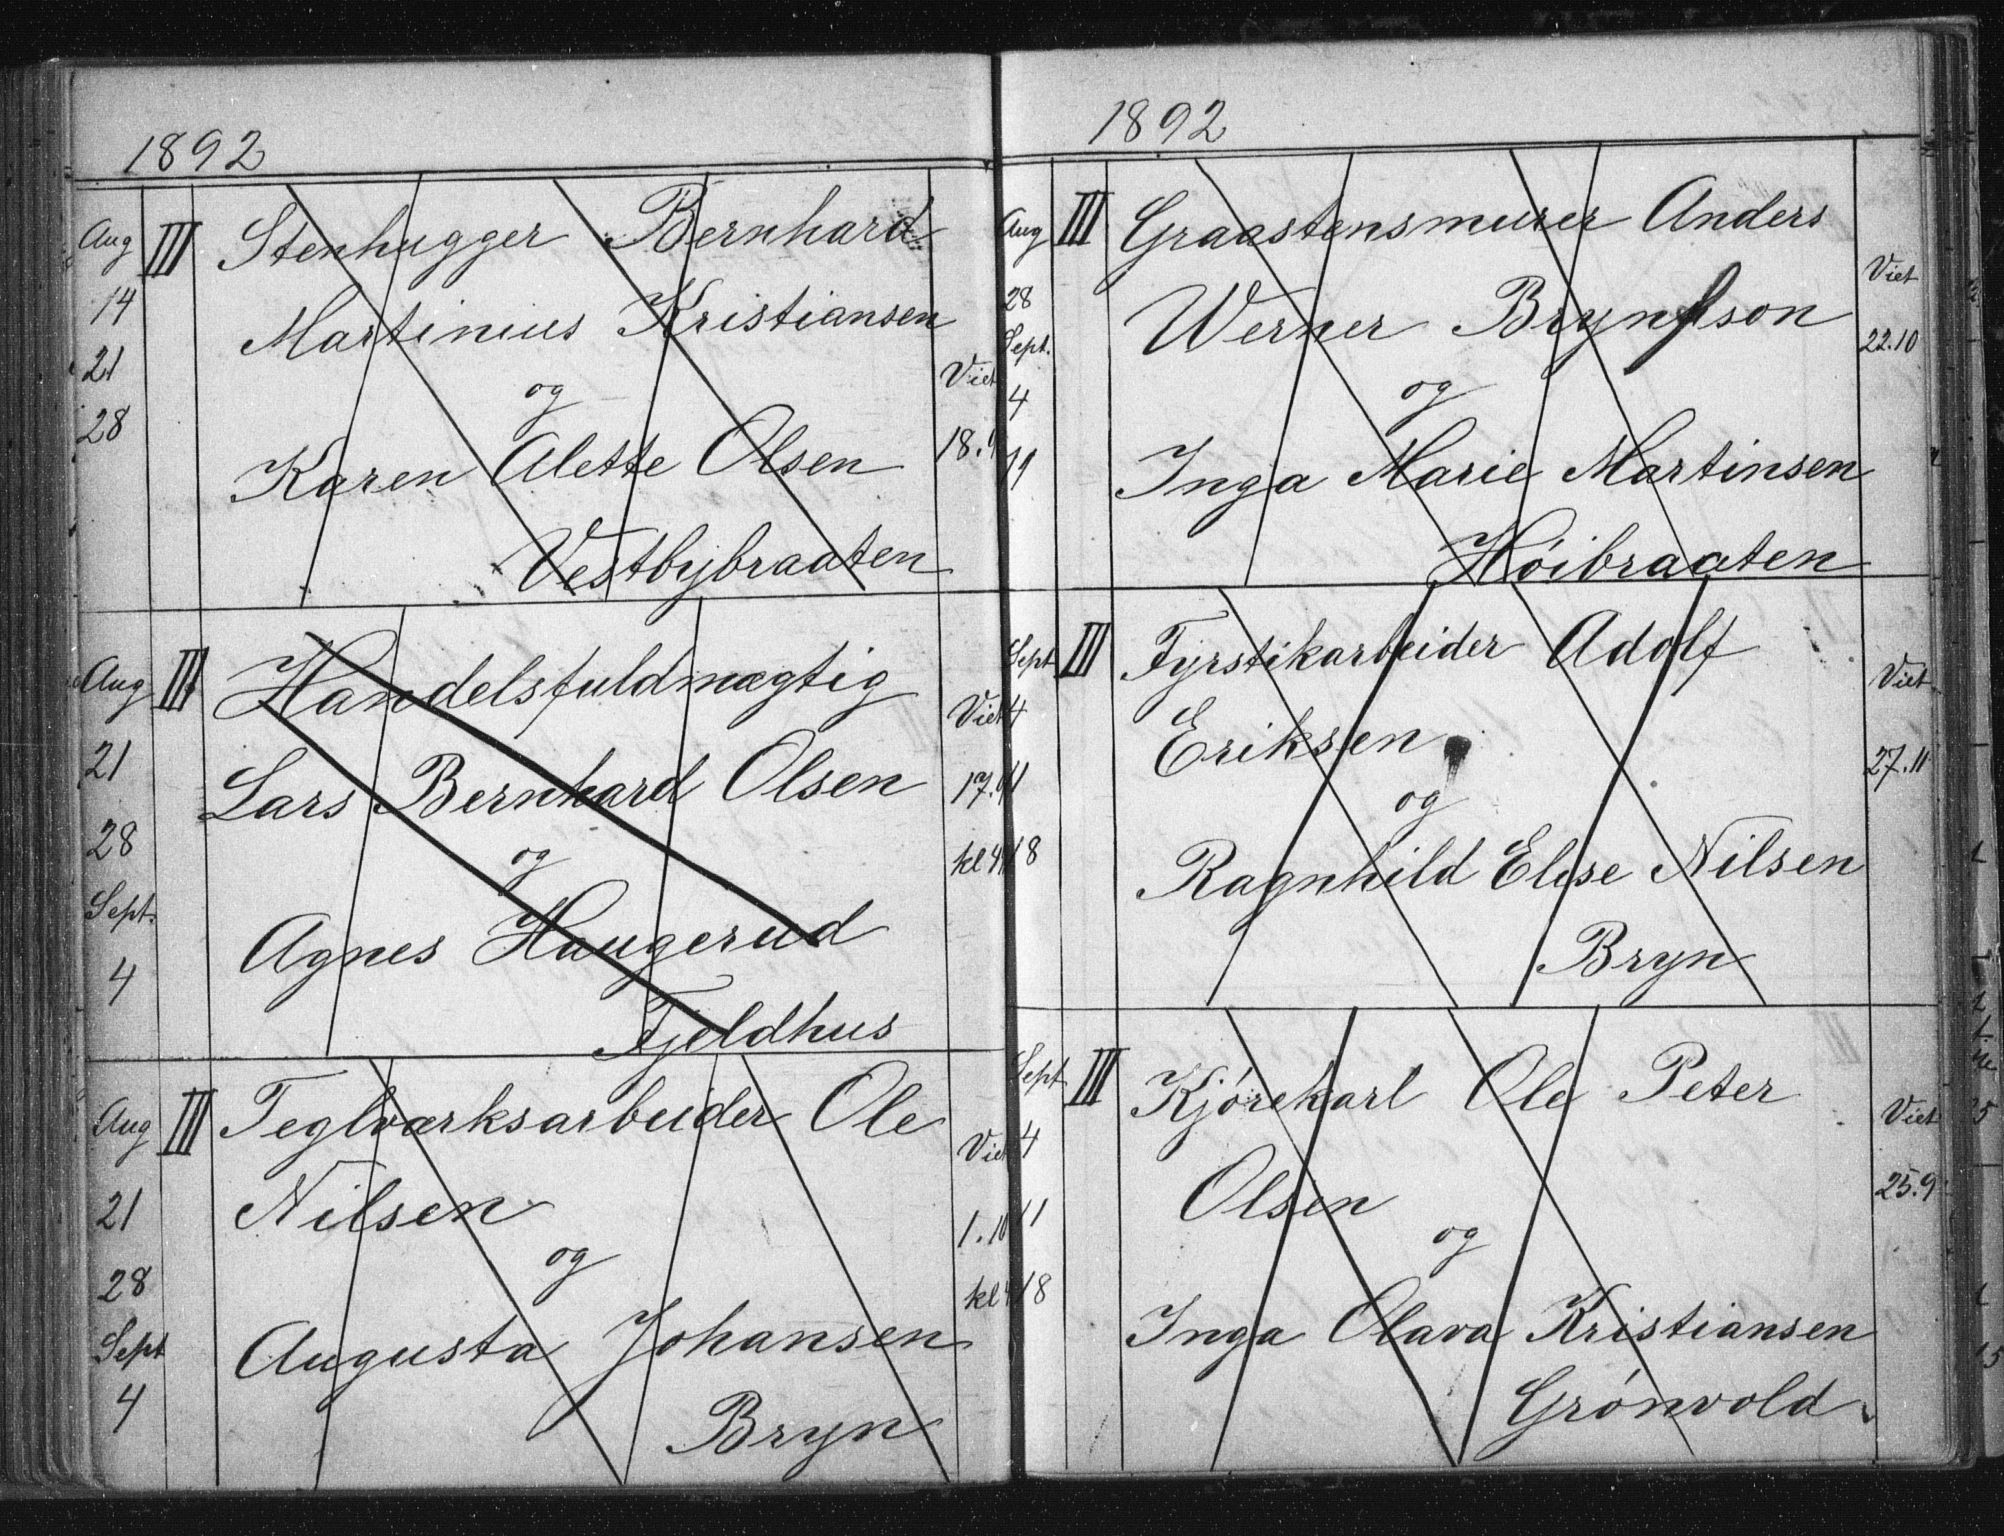 1892
Aug III Stenhugger Bernhard
14 Martinius Kristiansen
21 og Viet
28 Karen Alette Olsen 18.9
Vestbybraaten
Aug III Handelsfuldmægtig Viet
21 Lars Bernhard Olsen 17.9
28 og kl 4
Sept. Agnes Haugerud
4 Fjeldhus
Aug III Teglværksarbeider Ole Viet
21 Nilsen 1.10
28 og kl
Sept Augusta Johansen
4 Bryn
1892
Aug III Graastensmurer Anders Viet
28 Werner Brynfson 22.10
Sept. og
4 Inga Marie Martinsen
11 Høibraaten
Sept III Fyrstikarbeider Adolf Viet
4 Eriksen 27.11
11 og
18 Ragnhild Elise Nilsen
Bryn
Sept III Kjørekarl Ole Peter Viet
4 Olsen 25.9
11 og
18 Inga Olava Kristiansen
Grønvold